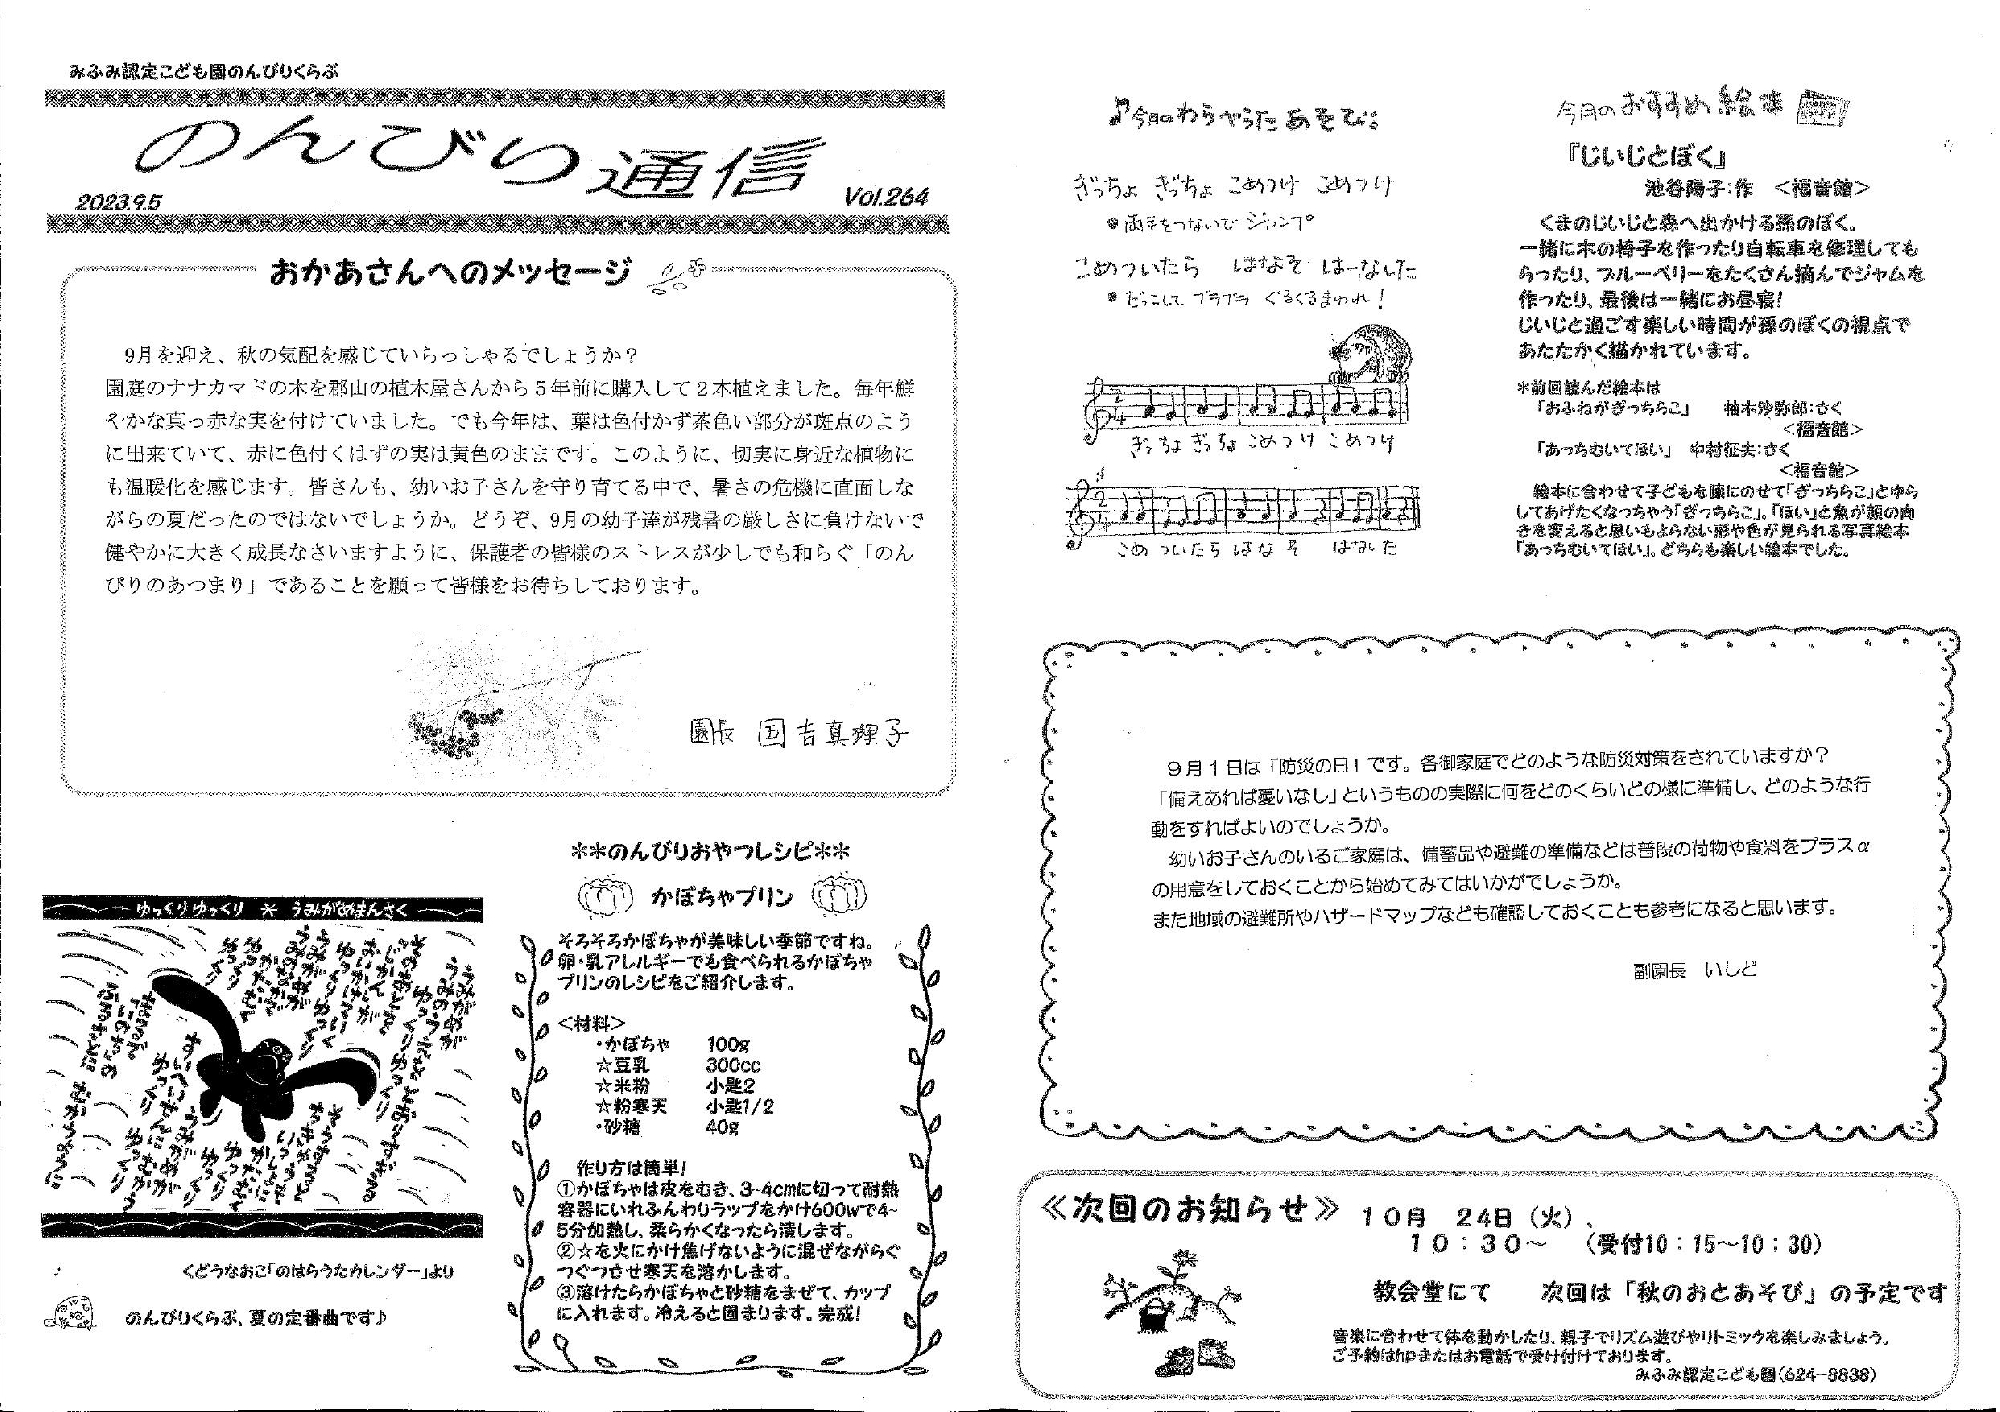 みふみ認定こども園のんびりくらぶ
のんびり通信
2023.9.5
Vol.264
おかあさんへのメッセージ
9月を迎え、秋の気配を感じていらっしゃるでしょうか？
園庭のナナカマドの木を郡山の植木屋さんから５年前に購入して２本植えました。毎年鮮
やかな真っ赤な実を付けていました。でも今年は、葉は色付かず茶色い部分が斑点のよう
に出来ていて、赤に色付くはずの実は黄色のままです。このように、切実に身近な植物に
も温暖化を感じます。皆さんも、幼いお子さんを守り育てる中で、暑さの危機に直面しな
がらの夏だったのではないでしょうか。どうぞ、9月の幼子達が残暑の厳しさに負けないで
健やかに大きく成長なさいますように、保護者の皆様のストレスが少しでも和らぐ「のん
びりのあつまり」であることを願って皆様をお待ちしております。
園長 国吉真理子
ゆっくりゆっくり ＊ うみがめまんさく
くどうなおこ「のはらうたカレンダー」より
のんびりくらぶ、夏の定番曲です♪
＊＊のんびりおやつレシピ＊＊
かぼちゃプリン
そろそろかぼちゃが美味しい季節ですね。
卵・乳アレルギーでも食べられるかぼちゃ
プリンのレシピをご紹介します。
＜材料＞
・かぼちゃ 100g
☆豆乳 300cc
☆米粉 小匙2
☆粉寒天 小匙1/2
・砂糖 40g
作り方は簡単!
①かぼちゃは皮をむき、3~4cmに切って耐熱
容器にいれふんわりラップをかけ600wで4~
5分加熱し、柔らかくなったら潰します。
②☆を火にかけ焦げないように混ぜながらぐ
つぐつさせ寒天を溶かします。
③溶けたらかぼちゃと砂糖をまぜて、カップ
に入れます。冷えると固まります。完成!
♪今月のわらべうたあそび♪
ぎっちょ ぎっちょ こめつけ こめつけ
●両手をつないで ジャンプ
こめついたら はなそ はーなした
●だっこして ブラブラ ぐるぐるまわれ！
ぎっちょ ぎっちょ こめつけ こめつけ
こめ ついたら はな そ はなした
今月のおすすめ絵本
『じいじとぼく』
池谷陽子:作 ＜福音館＞
くまのじいじと森へ出かける孫のぼく。
一緒に木の椅子を作ったり自転車を修理しても
らったり、ブルーベリーをたくさん摘んでジャムを
作ったり、最後は一緒にお昼寝!
じいじと過ごす楽しい時間が孫のぼくの視点で
あたたかく描かれています。
＊前回読んだ絵本は
「おふねがぎっちらこ」 柚木沙弥郎:さく
＜福音館＞
「あっちむいてほい」 中村征夫:さく
＜福音館＞
絵本に合わせて子どもを膝にのせて「ぎっちらこ」とゆら
してあげたくなっちゃう「ぎっちらこ」。「ほい」と魚が顔の向
きを変えると思いもよらない形や色が見られる写真絵本
「あっちむいてほい」。どちらも楽しい絵本でした。
９月１日は「防災の日」です。各御家庭でどのような防災対策をされていますか？
「備えあれば憂いなし」というものの実際に何をどのくらいどの様に準備し、どのような行
動をすればよいのでしょうか。
幼いお子さんのいるご家庭は、備蓄品や避難の準備などは普段の荷物や食料をプラスα
の用意をしておくことから始めてみてはいかがでしょうか。
また地域の避難所やハザードマップなども確認しておくことも参考になると思います。
副園長 いしど
≪次回のお知らせ≫ １０月 24日（火）、
１０：３０～ （受付10：15～10：30）
教会堂にて 次回は「秋のおとあそび」の予定です
音楽に合わせて体を動かしたり、親子でリズム遊びやリトミックを楽しみましょう。
ご予約はhpまたはお電話で受け付けております。
みふみ認定こども園(624-8838)